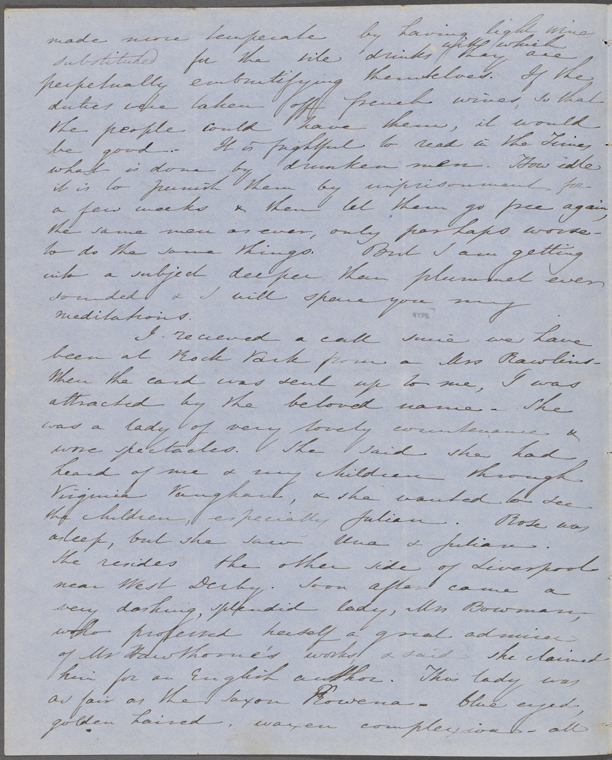 made more temperate by having light wine
substituted for the vile drinks with which they are
perpetually embrutifying themselves. If the
duties were taken off French wines, so that
the people could have them, it would
be good. It is frightful to read in the Times
what is done by drunken men. How idle
it is to punish them by imprisonment for
a few weeks & then let them go free again,
the same men as ever, only perhaps worse—
to do the same things. But I am getting
into a subject deeper than plummet ever
sounded & I will spare you my
meditations.
I recieved a call since we have
been at Rock Park from a Mrs Rawlins—
When the card was sent up to me, I was
attracted by the beloved name— She
was a lady of very lovely countenance &
wore spectacles. She said she had
heard of me & my children through
Virginia Vaughan, & she wanted to see
the children, especially Julian. Rose was
asleep, but she saw Una & Julian.
She resides the other side of Liverpool
near West Derby. Soon after came a
very dashing, splendid lady, Mrs Bowman,
who professed herself a great admirer
of Mr Hawthorne's works & said she claimed
him for an English author. This lady was
as fair as the Saxon Rowena— blue eyed,
golden haired, waxen complexion— all
NYPL